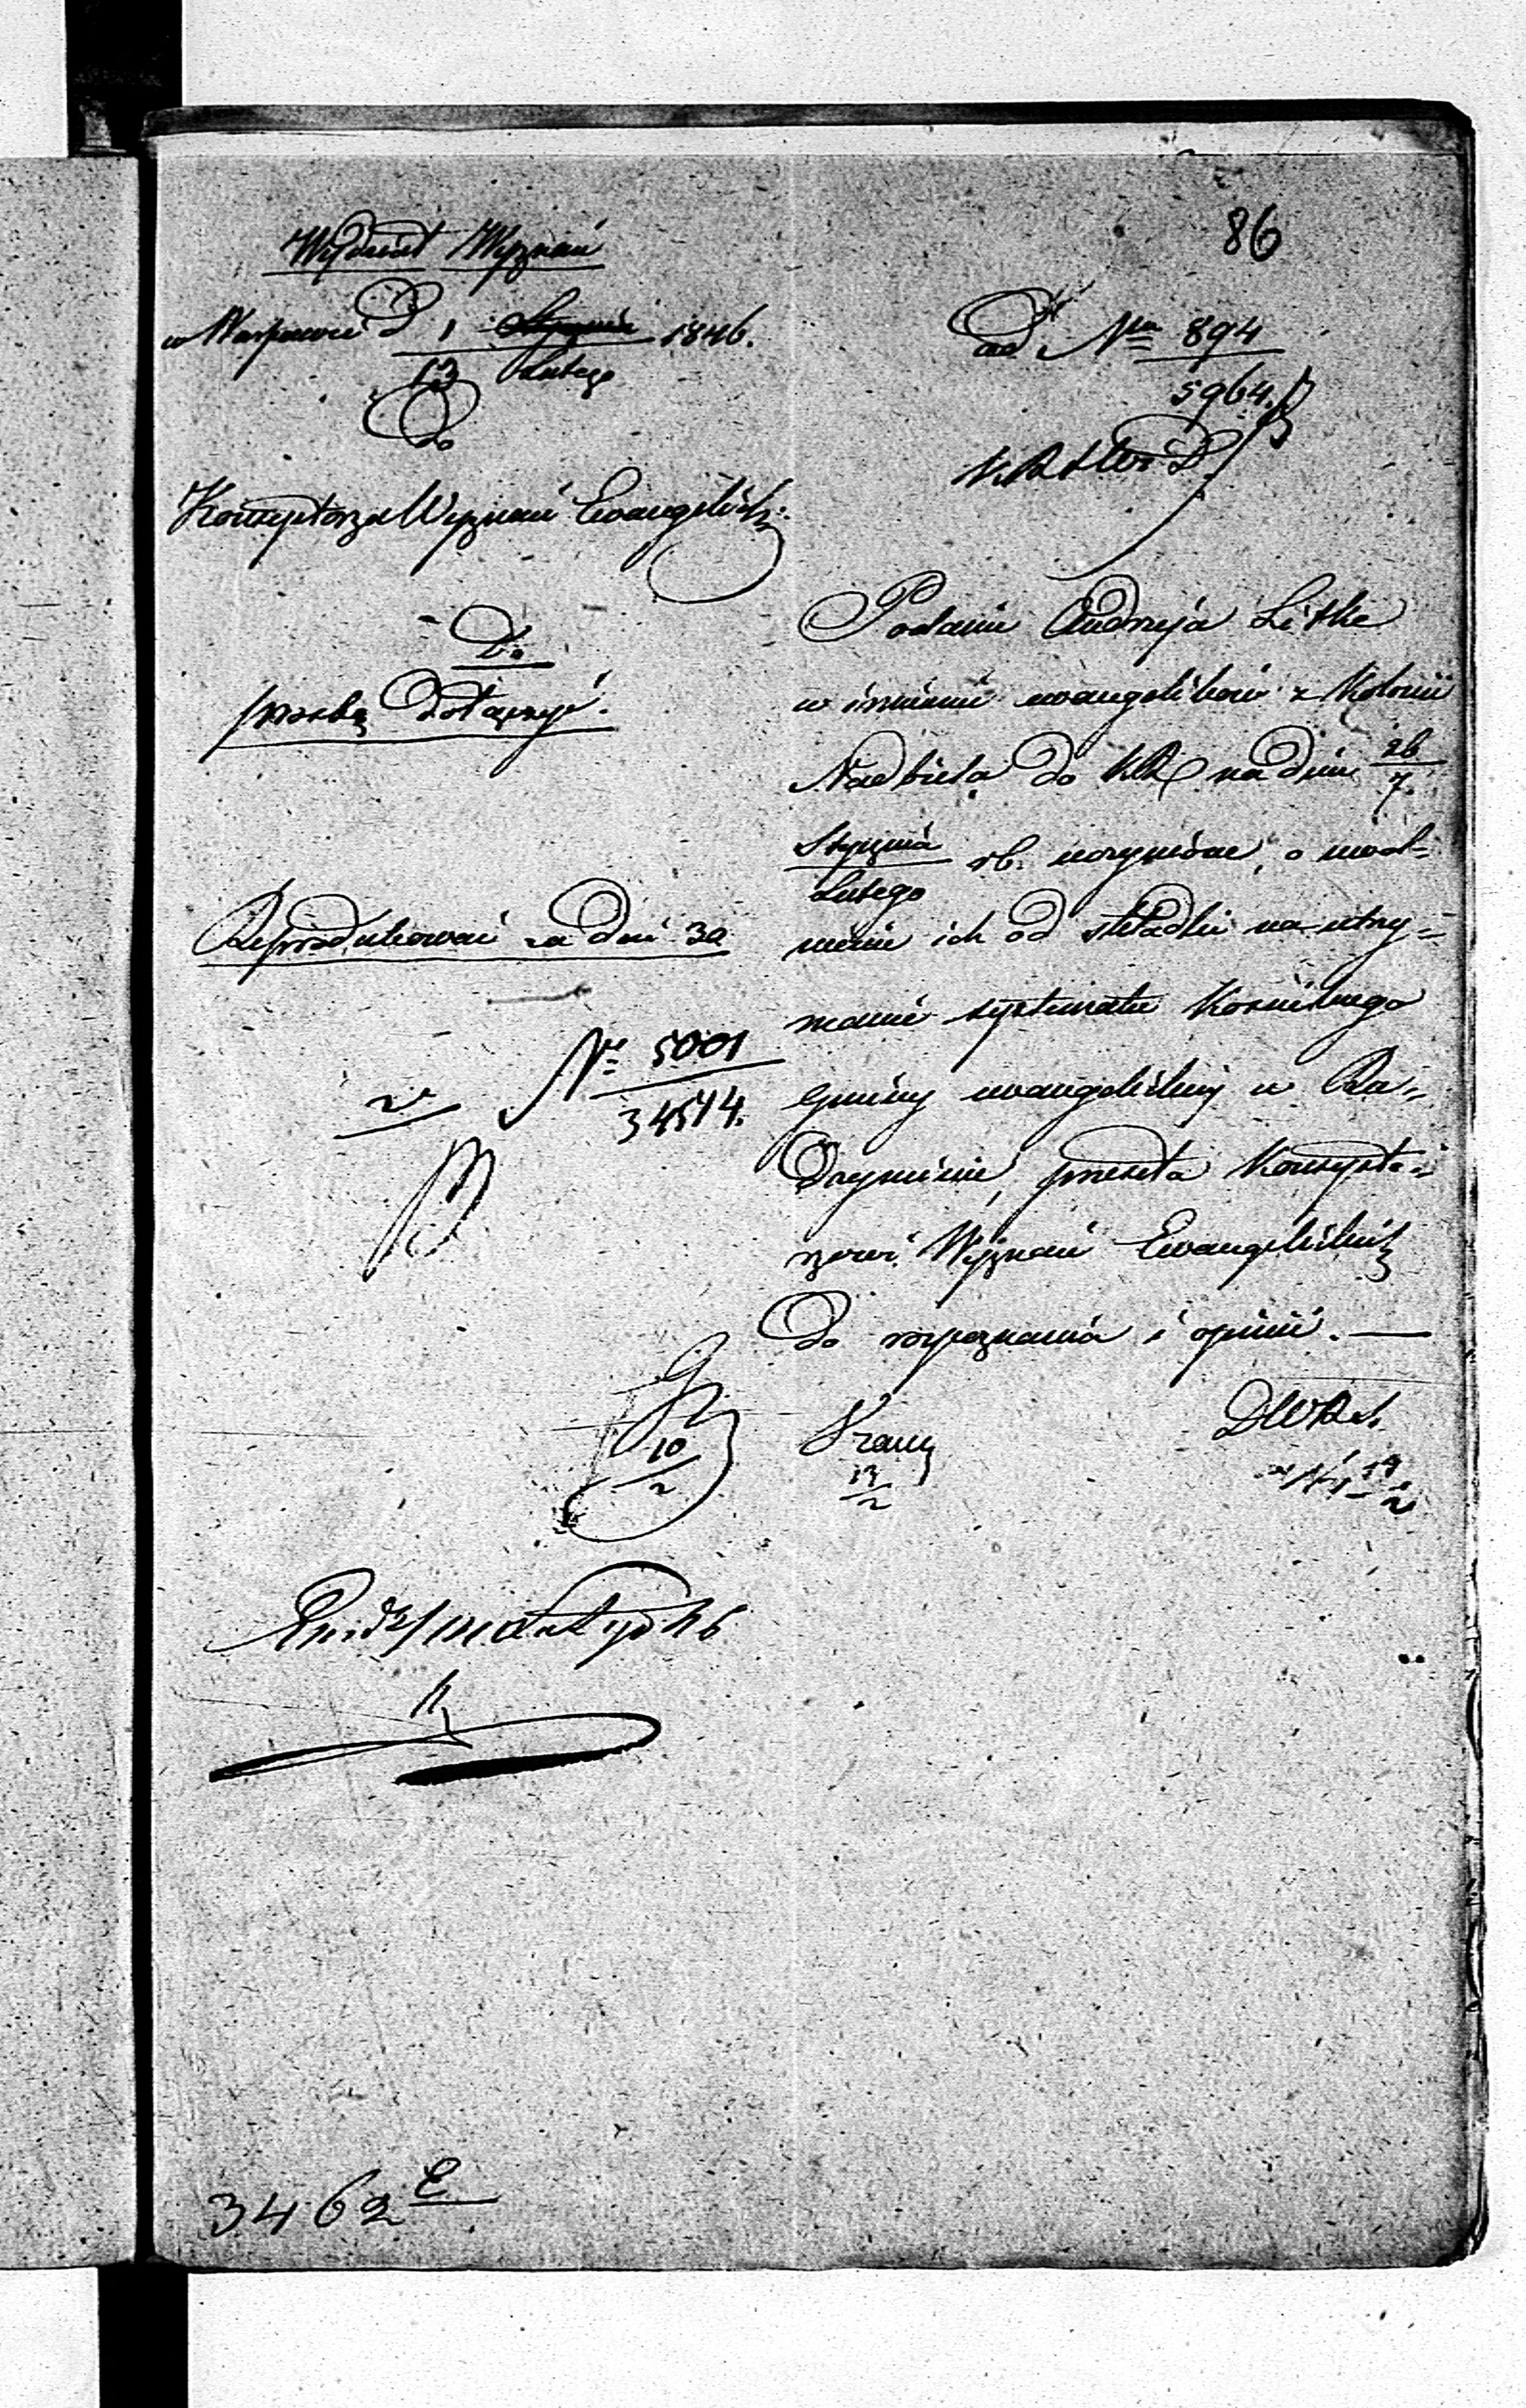 86
Wydział Wyznań
w Warszawie D 1 Stycznia 1846.
13 Lutego
Do
Konsystorza Wyznań Ewangelickich
ad Nra 894
5964.
Do
prośbę dołączyć.
Reprodukować za dni 30
Nr 5001
34514.
Podanie Andrzeja Litke
w imieniu ewangelików z Kolonii
Nadbiela do KR na dniu 26/7
Stycznia
Lutego rb. uczynione, o uwol-
nienie ich od składki na utrzy-
manie systematu Kościelnego
gminy ewangelickiej w Ra-
dzyminie, przesyła Konsysto-
rzowi Wyznań Ewangelickich
do rozpoznania i opinii. —
10
2
13
2
3462 E